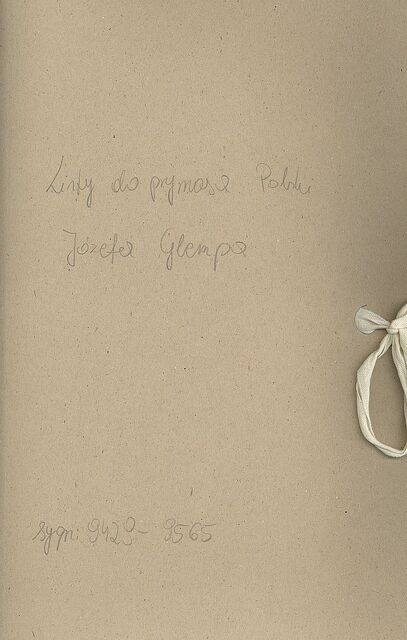 Listy do prymasa Polski
Józefa Glempa
sygn: 9429 - 9565